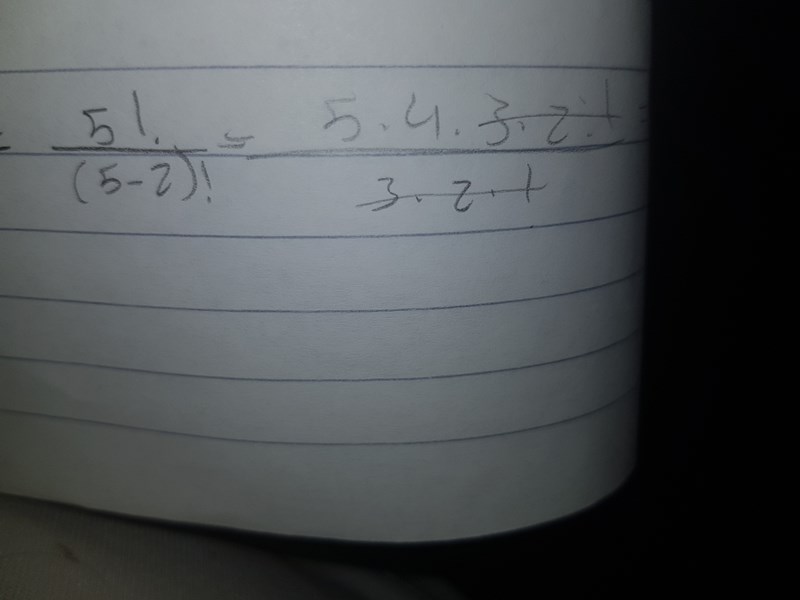 = 5! / (5-2)! = 5.4.3.2.1 / 3.2.1 =